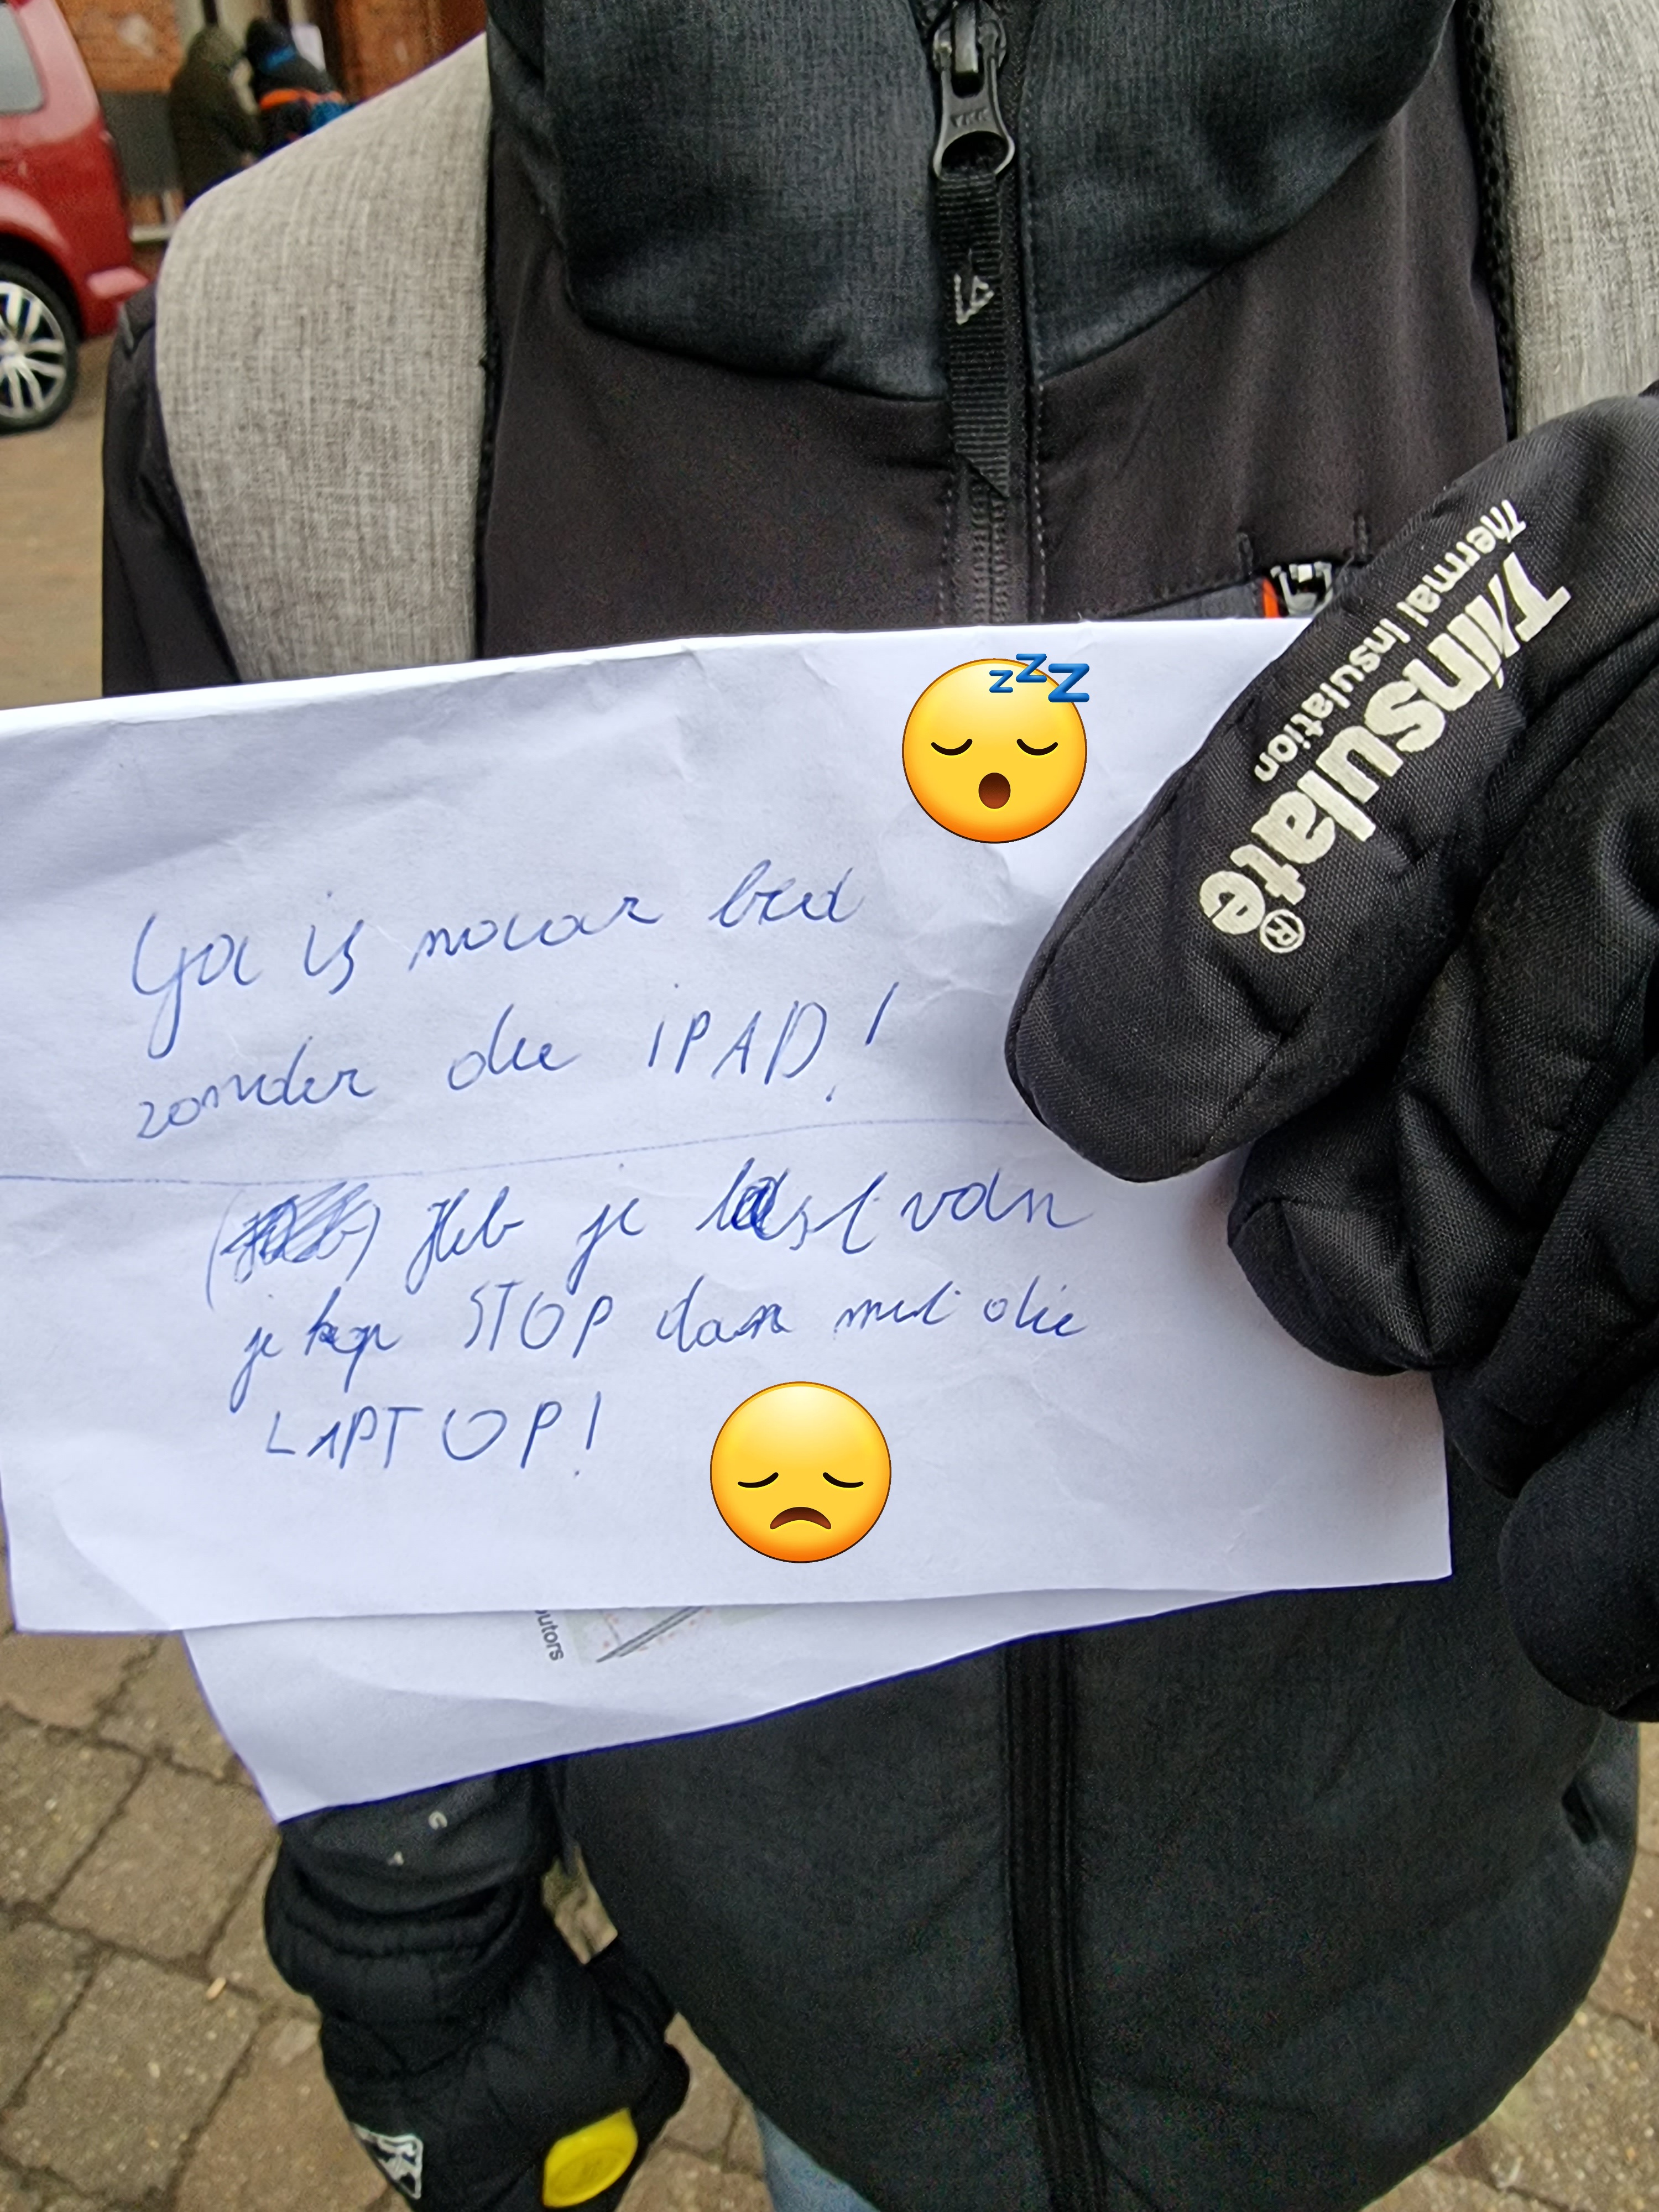 Thinsulate®
Thermal Insulation
Ga is naar bed
zonder die IPAD!
Heb je last van
je kop STOP dan met die
LAPTOP!
utors